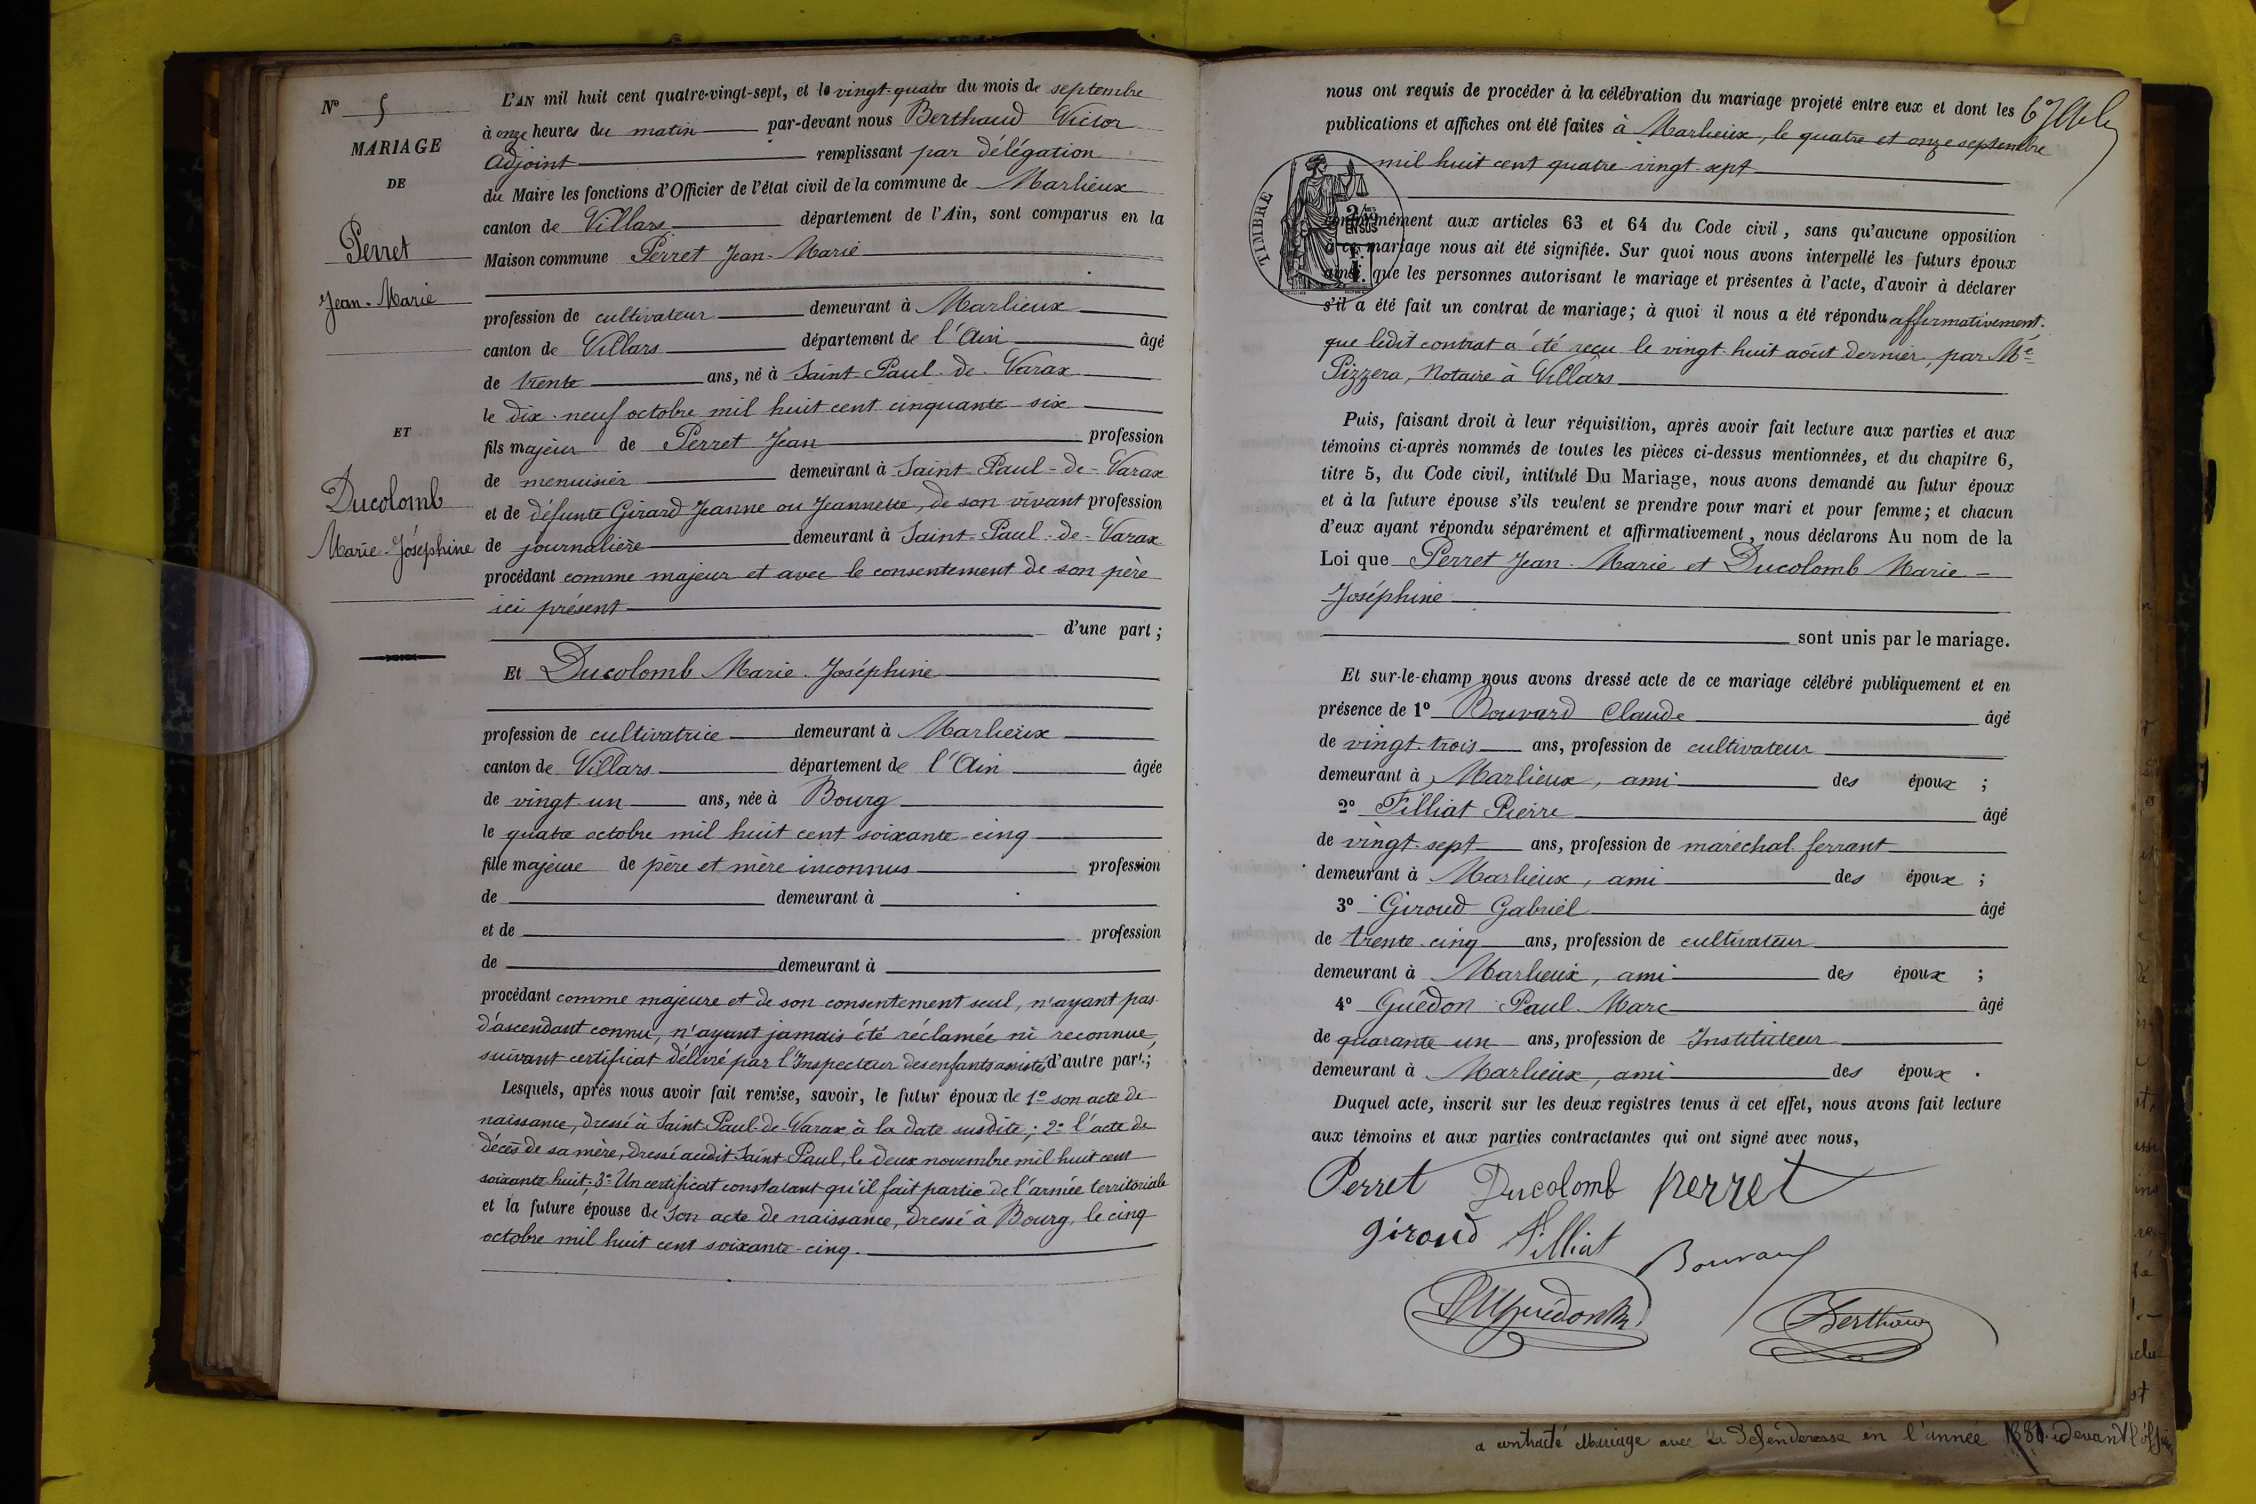 N° 5
MARIAGE
DE
Perret
Jean-Marie
ET
Ducolomb
Marie-Joséphine
L'AN mil huit cent quatre-vingt-sept, et le vingt-quatre du mois de septembre
à onze heures du matin par-devant nous Berthaud Victor
Adjoint remplissant par délégation
du Maire les fonctions d'Officier de l'état civil de la commune de Marlieux
canton de Villars département de l'Ain, sont comparus en la
Maison commune Perret Jean-Marie
profession de cultivateur demeurant à Marlieux
canton de Villars département de l'Ain âgé
de trente ans, né à Saint-Paul-de-Varax
le dix-neuf octobre mil huit cent cinquante-six
fils majeur de Perret Jean profession
de menuisier demeurant à Saint-Paul-de-Varax
et de défunte Girard Jeanne ou Jeannette, de son vivant profession
de journalière demeurant à Saint-Paul-de-Varax
procédant comme majeur et avec le consentement de son père
ici présent
d'une part ;
Et Ducolomb Marie-Joséphine
profession de cultivatrice demeurant à Marlieux
canton de Villars département de l'Ain âgée
de vingt-un ans, née à Bourg
le quatre octobre mil huit cent soixante-cinq
fille majeure de père et mère inconnus profession
de demeurant à
et de profession
de demeurant à
procédant comme majeure et de son consentement seul, n'ayant pas
d'ascendant connu, n'ayant jamais été réclamée ni reconnue,
suivant certificat délivré par l'Inspecteur des enfants assistés d'autre part ;
Lesquels, après nous avoir fait remise, savoir, le futur époux de 1° son acte de
naissance, dressé à Saint-Paul-de-Varax à la date susdite ; 2° l'acte de
décès de sa mère, dressé audit Saint-Paul, le deux novembre mil huit cent
soixante-huit ; 3° Un certificat constatant qu'il fait partie de l'armée territoriale
et la future épouse de son acte de naissance, dressé à Bourg, le cinq
octobre mil huit cent soixante-cinq.
nous ont requis de procéder à la célébration du mariage projeté entre eux et dont les
publications et affiches ont été faites à Marlieux, le quatre et onze septembre
mil huit cent quatre-vingt-sept
TIMBRE
conformément aux articles 63 et 64 du Code civil, sans qu'aucune opposition
à ce mariage nous ait été signifiée. Sur quoi nous avons interpellé les futurs époux
ainsi que les personnes autorisant le mariage et présentes à l'acte, d'avoir à déclarer
s'il a été fait un contrat de mariage ; à quoi il nous a été répondu affirmativement.
que ledit contrat a été reçu le vingt-huit août dernier, par Me
Pizzera, Notaire à Villars
Puis, faisant droit à leur réquisition, après avoir fait lecture aux parties et aux
témoins ci-après nommés de toutes les pièces ci-dessus mentionnées, et du chapitre 6,
titre 5, du Code civil, intitulé Du Mariage, nous avons demandé au futur époux
et à la future épouse s'ils veulent se prendre pour mari et pour femme ; et chacun
d'eux ayant répondu séparément et affirmativement, nous déclarons Au nom de la
Loi que Perret Jean-Marie et Ducolomb Marie-
Joséphine
sont unis par le mariage.
Et sur-le-champ nous avons dressé acte de ce mariage célébré publiquement et en
présence de 1° Bouvard Claude âgé
de vingt-trois ans, profession de cultivateur
demeurant à Marlieux, ami des époux ;
2° Filliat Pierre âgé
de vingt-sept ans, profession de maréchal-ferrant
demeurant à Marlieux, ami des époux ;
3° Giroud Gabriel âgé
de trente-cinq ans, profession de cultivateur
demeurant à Marlieux, ami des époux ;
4° Guédon Paul-Marc âgé
de quarante-un ans, profession de Instituteur
demeurant à Marlieux, ami des époux .
Duquel acte, inscrit sur les deux registres tenus à cet effet, nous avons fait lecture
aux témoins et aux parties contractantes qui ont signé avec nous,
Perret Ducolomb perret
giroud Filliat
Bouvard
Berthaud
a contracté Mariage avec la Défenderesse en l'année